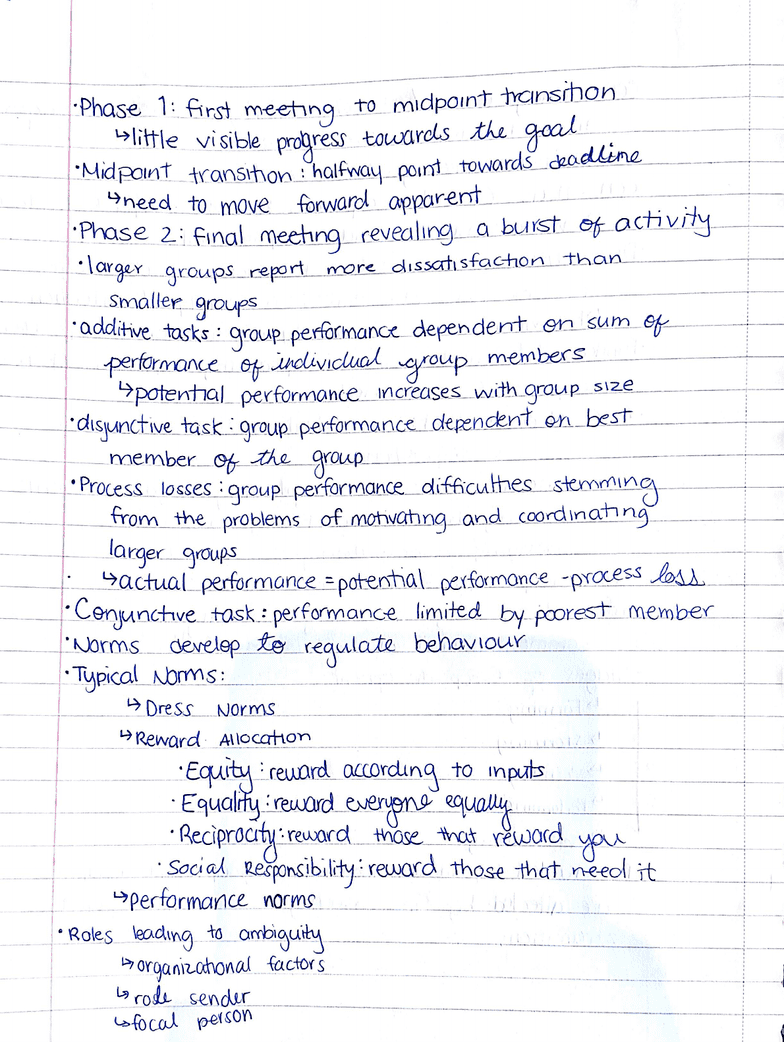 ·Phase 1: first meeting to midpoint transition
↳little visible progress towards the goal
·Midpoint transition: halfway point towards deadline
↳need to move forward apparent
·Phase 2: final meeting revealing a burst of activity
·larger groups report more dissatisfaction than
smaller groups
·additive tasks: group performance dependent on sum of
performance of individual group members
↳potential performance increases with group size
·disjunctive task: group performance dependent on best
member of the group
·Process losses: group performance difficulties stemming
from the problems of motivating and coordinating
larger groups
· ↳actual performance = potential performance - process loss
·Conjunctive task: performance limited by poorest member
·Norms develop to regulate behaviour
·Typical Norms:
↳Dress Norms
↳Reward Allocation
·Equity: reward according to inputs
·Equality: reward everyone equally
·Reciprocity: reward those that reward you
·Social Responsibility: reward those that need it
↳performance norms
·Roles leading to ambiguity
↳organizational factors
↳role sender
↳focal person